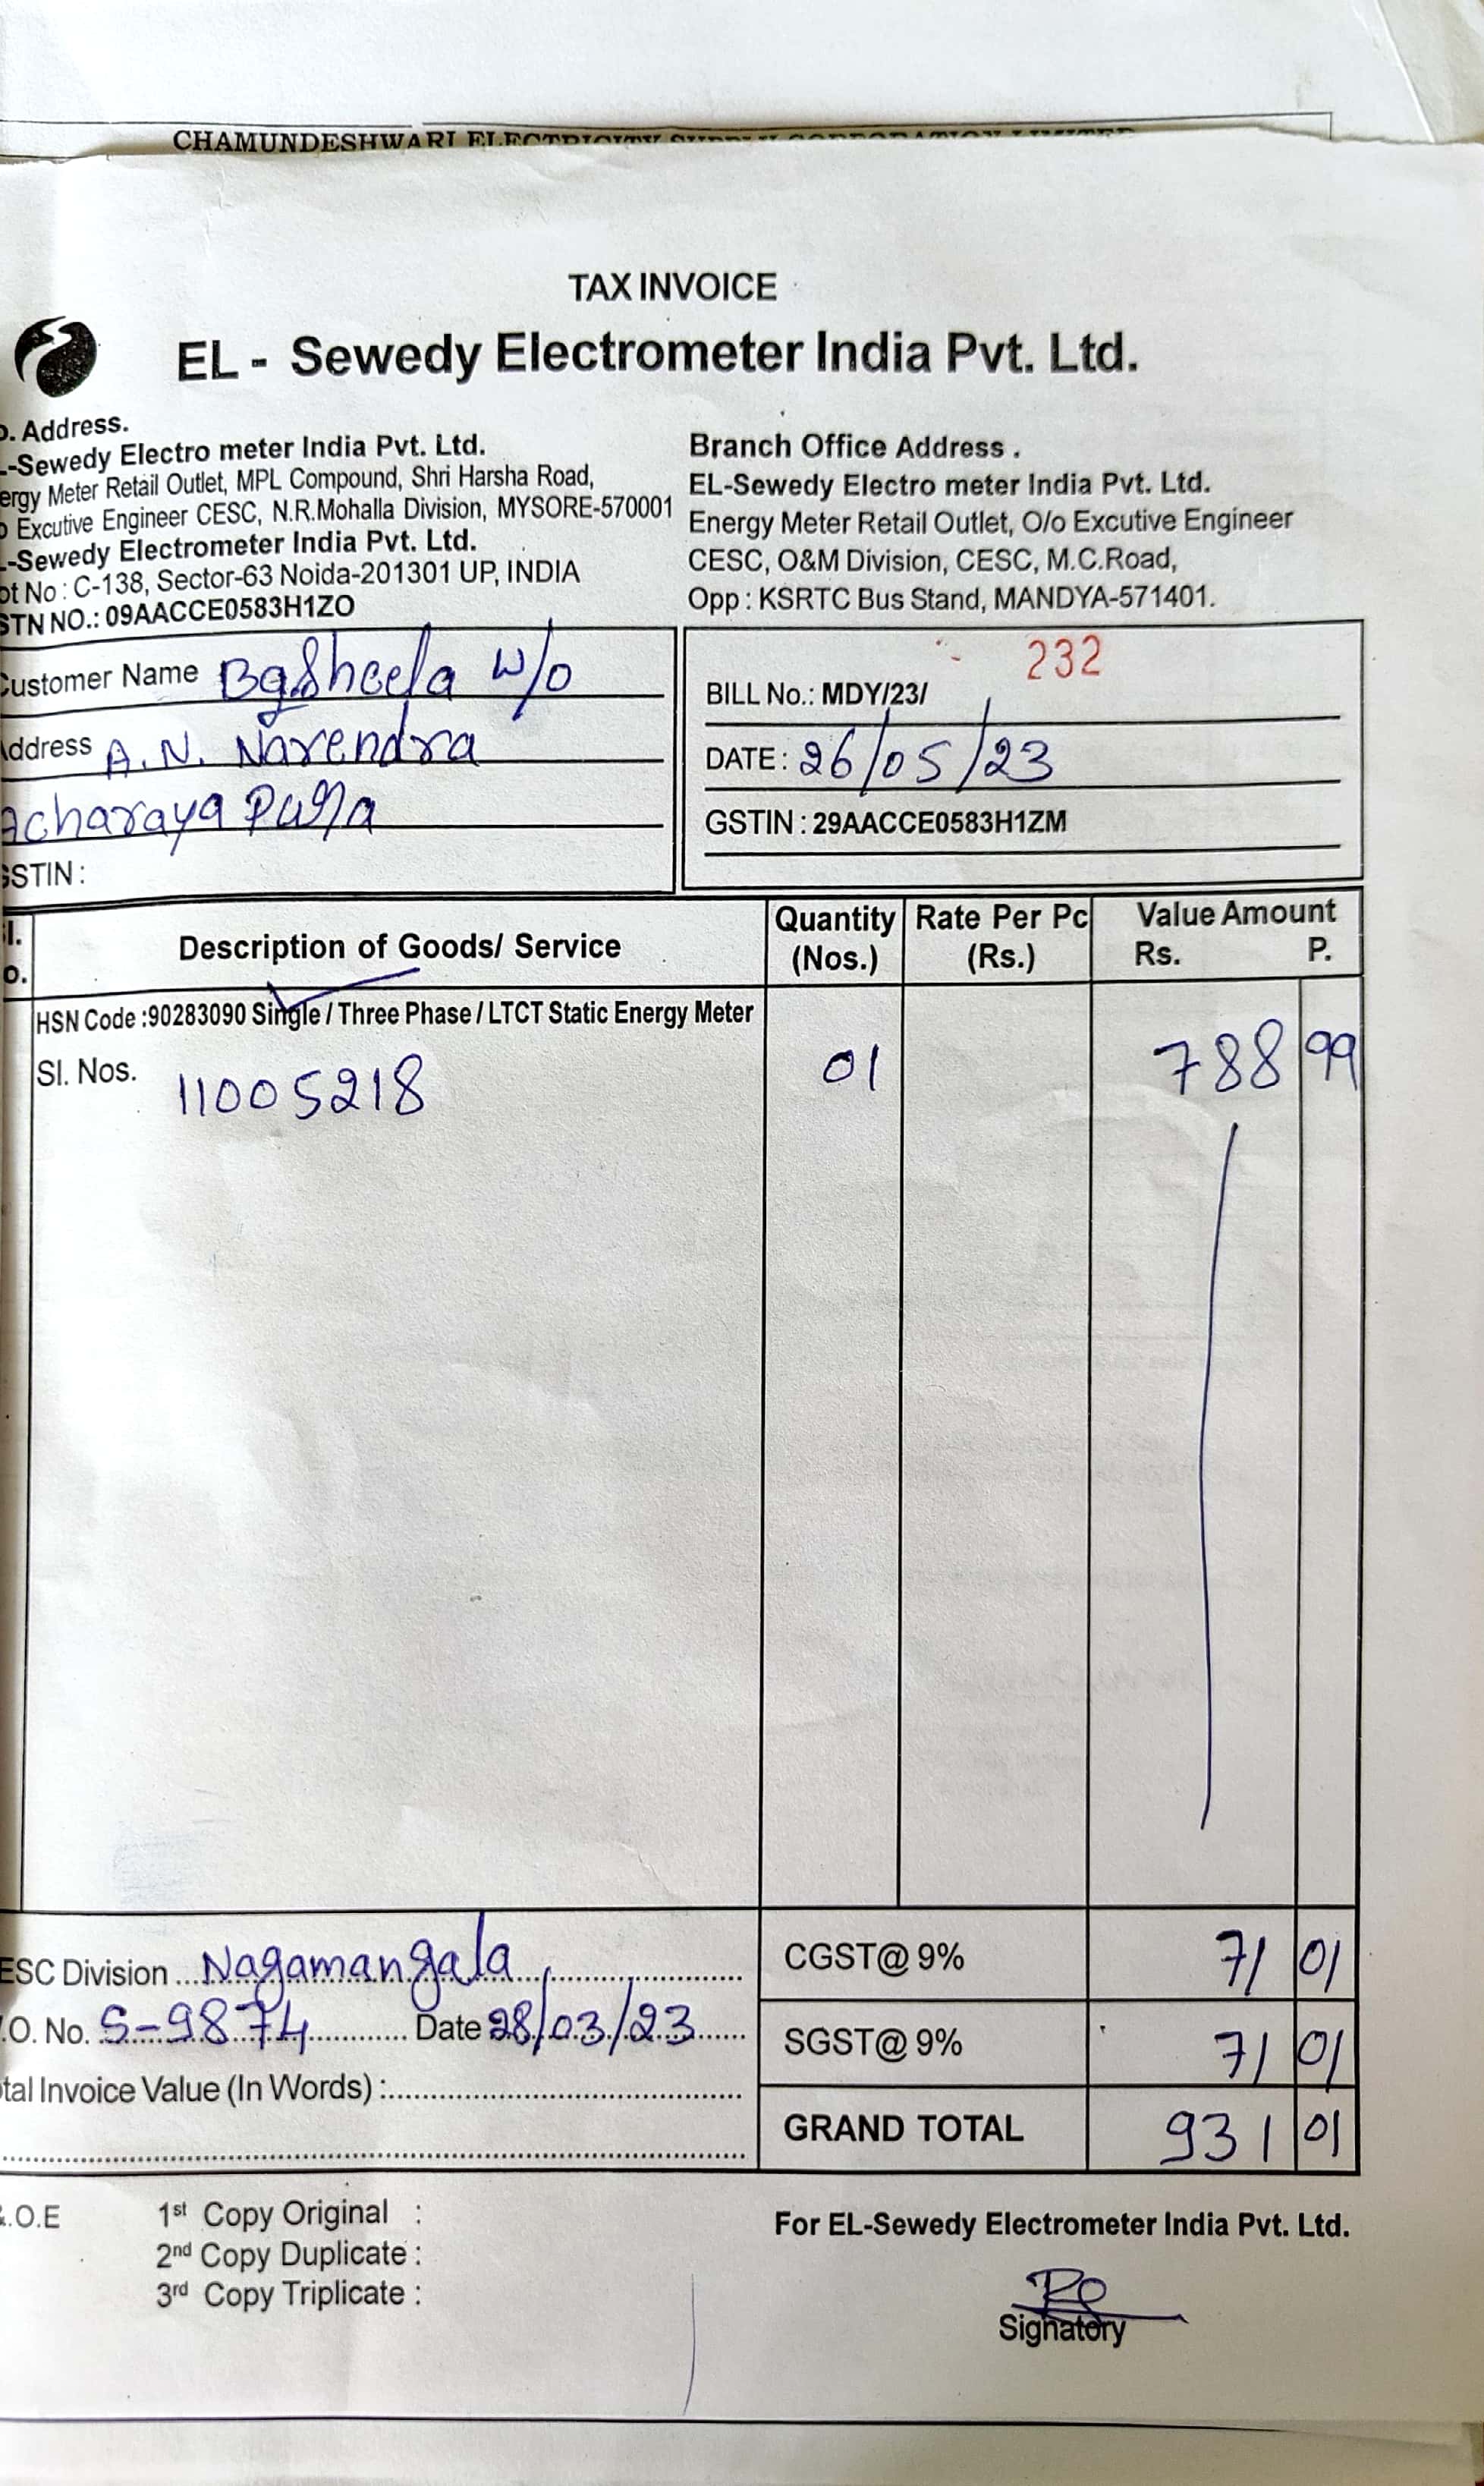 CHAMUNDESHWARI ELECTRICITY SUPPLY CORPORATION LIMITED
TAX INVOICE
EL - Sewedy Electrometer India Pvt. Ltd.
o. Address.
-Sewedy Electro meter India Pvt. Ltd.
ergy Meter Retail Outlet, MPL Compound, Shri Harsha Road,
o Excutive Engineer CESC, N.R.Mohalla Division, MYSORE-570001
-Sewedy Electrometer India Pvt. Ltd.
ot No : C-138, Sector-63 Noida-201301 UP, INDIA
STN NO.: 09AACCE0583H1ZO
Branch Office Address .
EL-Sewedy Electro meter India Pvt. Ltd.
Energy Meter Retail Outlet, O/o Excutive Engineer
CESC, O&M Division, CESC, M.C.Road,
Opp : KSRTC Bus Stand, MANDYA-571401.
Customer Name BgSheela w/o
Address A.N. Narendra
Acharaya
GSTIN :
232
BILL No.: MDY/23/
DATE : 26/05/23
GSTIN : 29AACCE0583H1ZM
Sl. o. Description of Goods/ Service Quantity (Nos.) Rate Per Pc (Rs.) Value Amount Rs. P.
HSN Code :90283090 Single / Three Phase / LTCT Static Energy Meter
Sl. Nos. 11005218 01 788 99
ESC Division Nagamangala CGST@ 9% 71 01
.O. No. S-9874 Date 28/03/23 SGST@ 9% 71 01
tal Invoice Value (In Words) : GRAND TOTAL 931 01
&.O.E 1st Copy Original :
2nd Copy Duplicate :
3rd Copy Triplicate :
For EL-Sewedy Electrometer India Pvt. Ltd.
Signatory